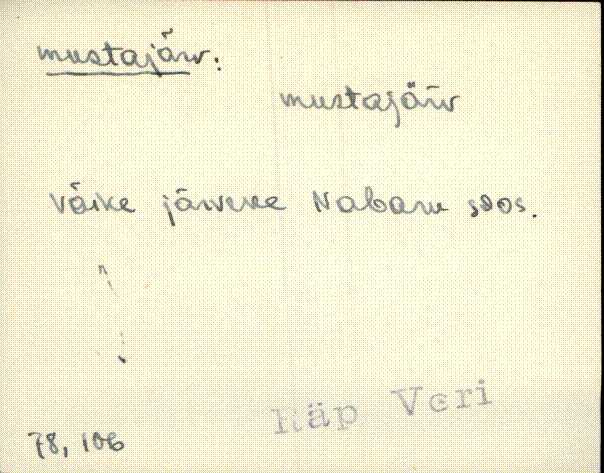 mustajärv:
mustajäŕv
väike järveke Nabaru soos.
Räp Veri
78, 106